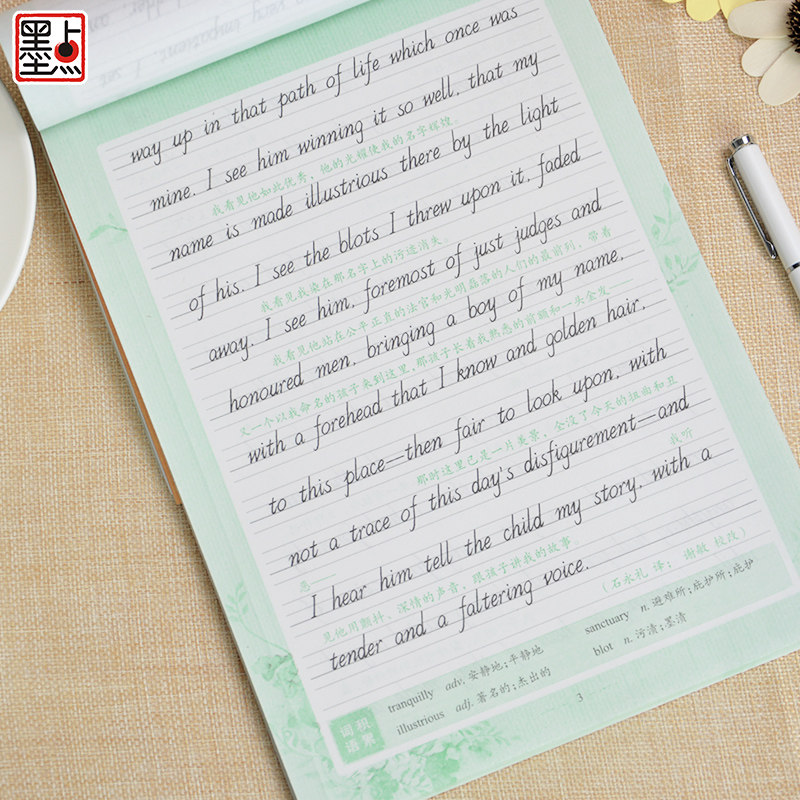 墨点
way up in that path of life which once was
mine. I see him winning it so well, that my
我看见他如此优秀，他的光耀使我的名字辉煌
name is made illustrious there by the light
of his. I see the blots I threw upon it, faded
我看见我染在那名字上的污迹消失
away. I see him, foremost of just judges and
我看见他站在公平正直的法官和光明磊落的人们的最前列，带着
honoured men, bringing a boy of my name,
又一个以我命名的孩子来到这里，那孩子长着我熟悉的前额和一头金发
with a forehead that I know and golden hair,
to this place—then fair to look upon, with
那时这里已是一片美景，全没了今天的扭曲和丑
not a trace of this day's disfigurement—and
我听
恶——
I hear him tell the child my story, with a
见他用颤抖、深情的声音，跟孩子讲我的故事。
tender and a faltering voice.
（石永礼 译； 谢敏 校改）
词语积累
tranquilly adv. 安静地；平静地
sanctuary n. 避难所；庇护所；庇护
illustrious adj. 著名的；杰出的
blot n. 污渍；墨渍
3